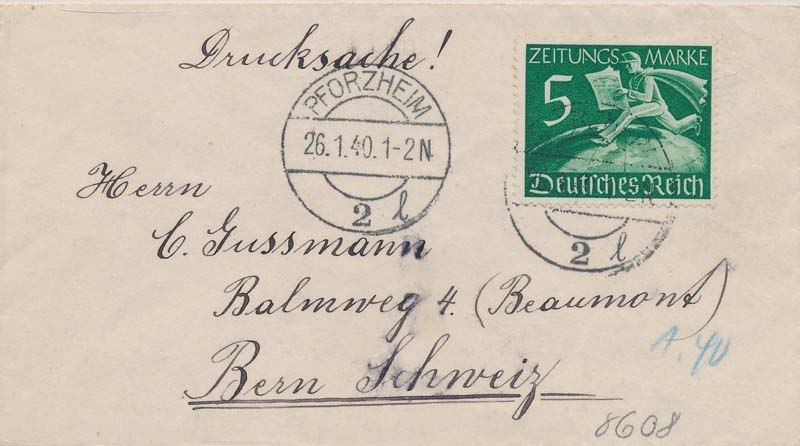 Drucksache!
ZEITUNGS MARKE
5
Deutsches Reich
PFORZHEIM
26.1.40.1-2N
2 l
2 l
Herrn
C. Gussmann
Balmweg 4. (Beaumont)
Bern Schweiz
A. 40
8608